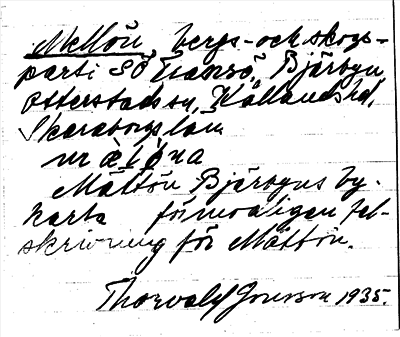 Mellön, bergs- och skogs-
parti SÖ Traneö, Bjärbyn,
Otterstads sn, Kållands hd,
Skaraborgs län
ur
Mättön Bjärbyns by-
karta förmodligen fel-
skrivning för Mättön.
Thorvald Jonsson 1935.